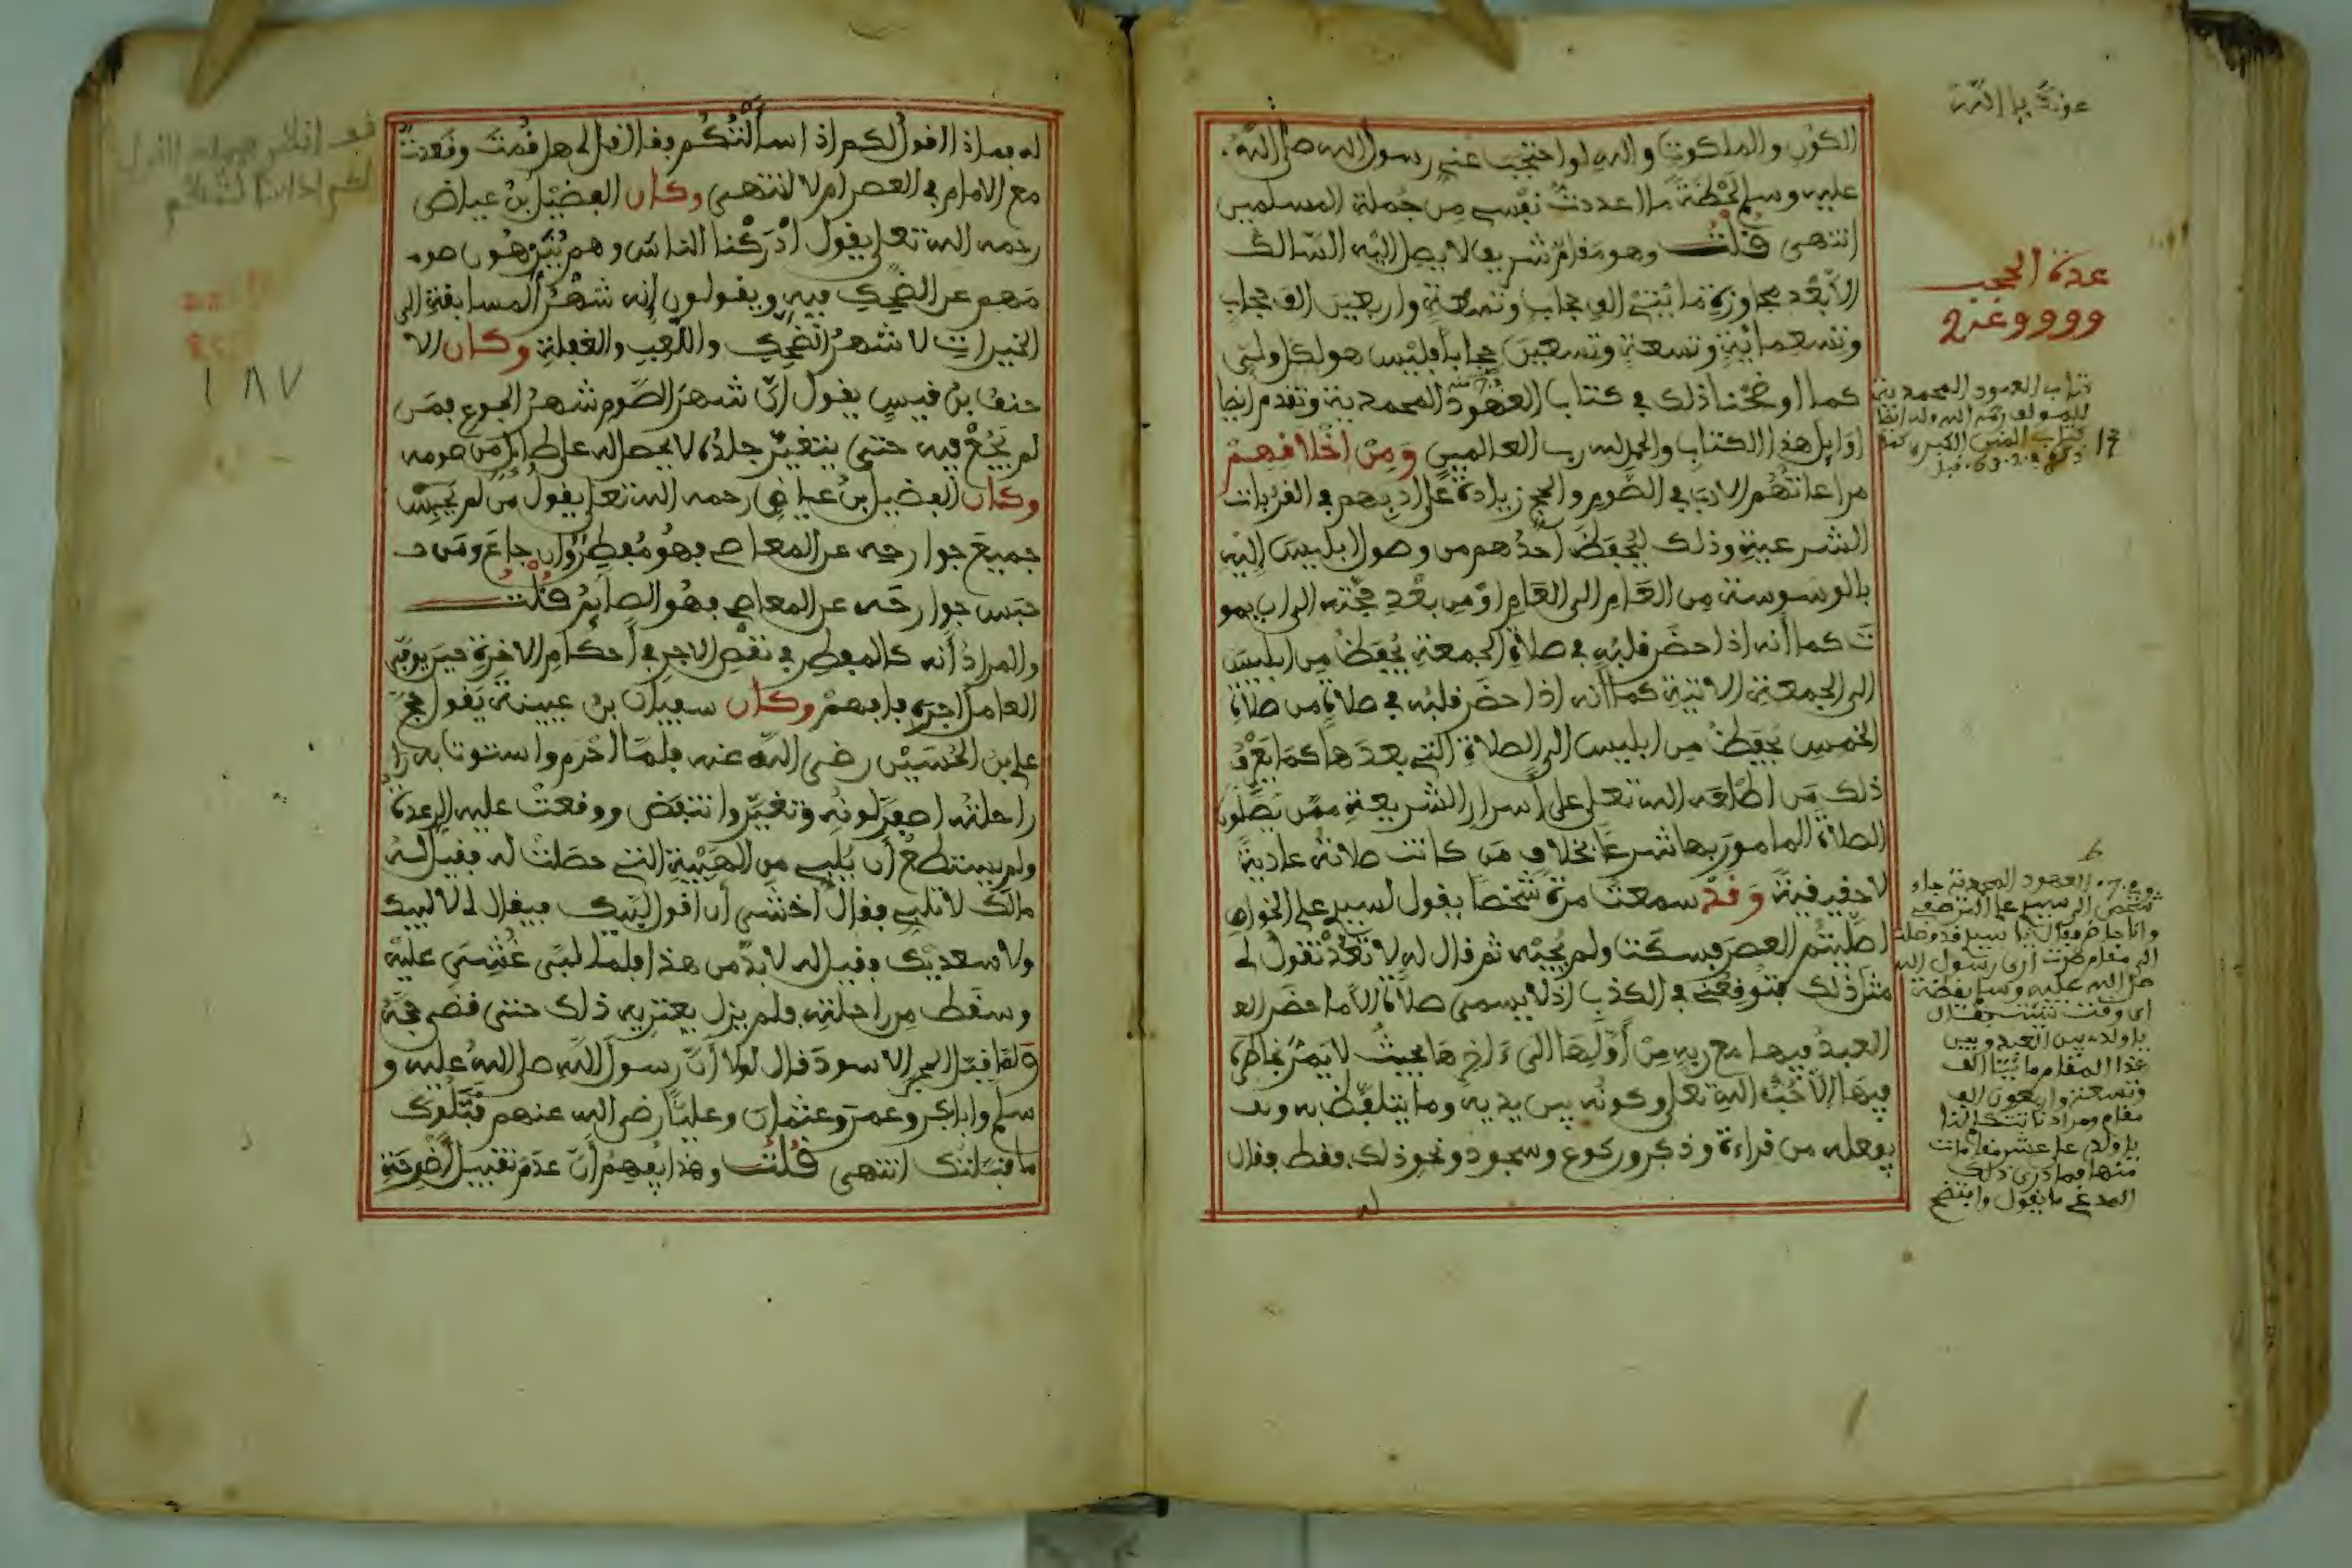 الكون والملكوت والله لو احتجب عني رسول الله صلى الله
عليه وسلم لحظة ما عددت نفسي من جملة المسلمين
انتهى قلت وهو مقام شريف لا يصل اليه السالك
الا بعد مجاوزة مائتي الف حجاب وتسعة واربعين الف حجاب
وتسعمائة وتسعة وتسعين حجابا فليس هو لكل ولي
كما اوضحنا ذلك في كتاب العهود المحمدية وتقدم ايضا
اوايل هذا الكتاب والحمد لله رب العالمين ومن اخلاقهم
مراعاتهم الادب في الصوم والحج زيادة على ادبهم في القربات
الشرعية وذلك ليحفظ احدهم من وصول ابليس اليه
بالوسوسة من العام الى العام او من بعد حجته الى ان يمو
ت كما أنه اذا حضر قلبه في صلاة الجمعة يحفظ من ابليس
الى الجمعة الاتية كما أنه اذا حضر قلبه في صلاة من صلاة
الخمس يحفظ من ابليس الى الصلاة التي بعدها كما يعرف
ذلك من اطلعه الله تعلى على أسرار الشريعة ممن يصلون
الصلاة المامور بها شرعا بخلاف من كانت صلاته عادية
لا حقيقية وقد سمعت مرة شخصا يقول لسيدي علي الخواص
اصليتم العصر فسكت ولم يجبه ثم قال له لا تعد تقول لي
مثل ذلك فتوقعني في الكذب اذ لا يسمى صلاة الا ما حضر الع
العبد فيها مع ربه من أولها الى ءاخرها بحيث لا يمر بخاطره
فيها الا حب الله تعلى وكونه بين يديه وما يتلفظ به وبـ
يفعله من قراءة وذكر وركوع وسجود ونحو ذلك فقط فقال
له
عدة الحجب
كتاب العهود المحمدية
للمولف رحمه الله وله ايضا
كتاب المنن الكبرى
العهود المحمدية جاء
شخص الى سيدي علي المرصفي
وانا حاضر فقال يا سيدي قد وصلت
الى مقام صرت ارى رسول الله
صلى الله عليه وسلم يقظة
اي وقت شئت فقال
يا ولدي بين العبد وبين
هذا المقام مائتا الف
وتسعة واربعون الف
مقام ومرادنا تتكلم لنا
يا ولدي على عشر مقامات
منها فما درى ذلك
المدعي ما يقول وافتضح
له بماذا اقول لكم اذا سألتكم فقال قل لي هل قمت وقعدت
مع الامام في العصر ام لا انتهى وكان الفضيل بن عياض
رحمه الله تعلى يقول ادركنا الناس وهم ينزهون صو
مهم عن الضحك فيه ويقولون إنه شهر المسابقة الى
الخيرات لا شهر الضحك واللعب والغفلة وكان الا
حنف بن قيس يقول ان شهر الصوم شهر الجوع فمن
لم يجع فيه حتى يتغير جلده لا يحصل له على طايل من صومه
وكان الفضيل بن عياض رحمه الله تعلى يقول من لم يحبس
جميع جوارحه عن المعاصي فهو مفطر وان جاع ومن
حبس جوارحه عن المعاصي فهو الصايم قلت
والمراد أنه كالمفطر في نقص الاجر في أحكام الاخرة حين يوفى
العامل اجره فافهم وكان سفيان بن عيينة يقول حج
علي بن الحسين رضي الله عنه فلما احرم واستوت به را
راحلته اصفر لونه وتغير وانتفض ووقعت عليه الرعدة
ولم يستطع أن يلبي من الهيبة التي حصلت له فقيل له
مالك لا تلبي فقال اخشى أن اقول لبيك فيقال لي لا لبيك
ولا سعديك فقيل له لا بد من هذا فلما لبى غشي عليه
وسقط من راحلته فلم يزل يعتريه ذلك حتى قضى حجه
ولما قبل الحجر الاسود قال لولا أن رسول الله صلى الله عليه و
سلم وابا بكر وعمر وعثمان وعليا رضي الله عنهم قبلوك
ما قبلتك انتهى قلت وهذا يفهم أن عدم تقبيل أضرحة
١٨٧